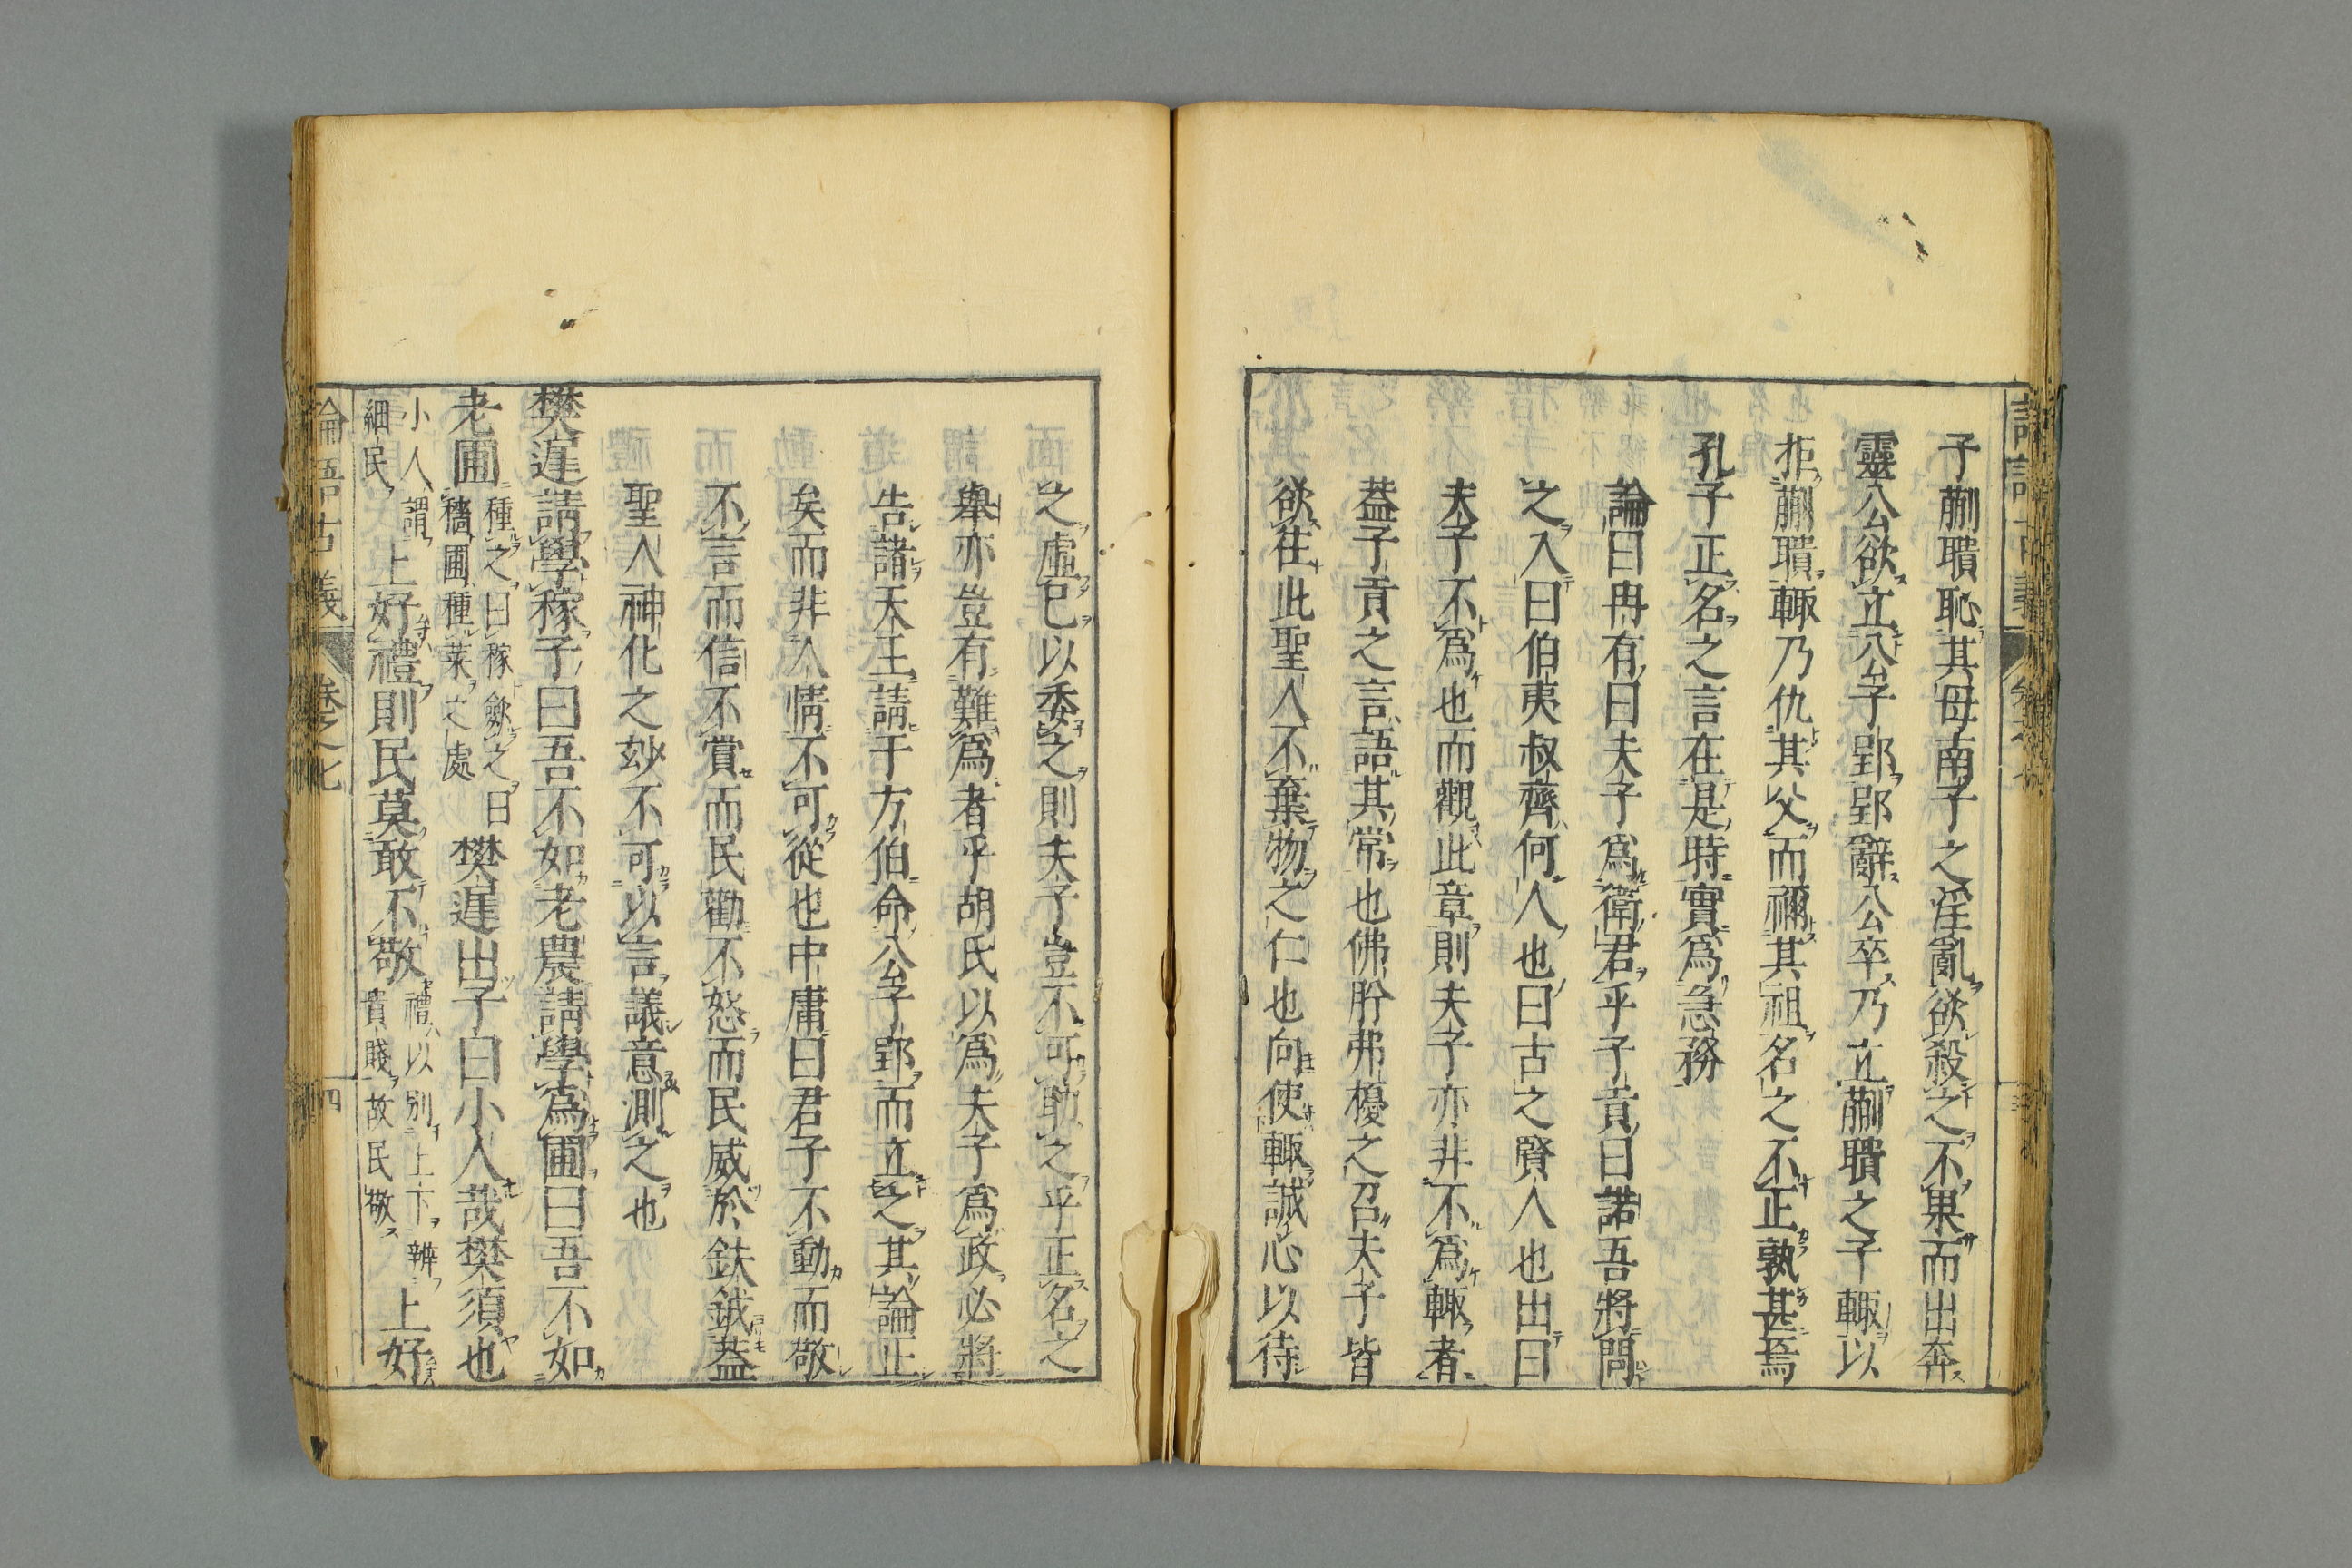 子蒯聵恥其母南子之淫亂欲殺之不果而出奔
靈公欲立公子郢郢辭公卒乃立蒯聵之子輒以
拒蒯聵輒乃仇其父而禰其祖名之不正孰甚焉
孔子正名之言在是時實爲急務
論曰冉有曰夫子爲衛君乎子貢曰諾吾將問
之入曰伯夷叔齊何人也曰古之賢人也出曰
夫子不爲也而觀此章則夫子亦非不爲輒者
葢子貢之言語其常也佛肸弗擾之召夫子皆
欲往此聖人不棄物之仁也向使輒誠心以待
之虛已以委之則夫子豈不可助之乎正名之
舉亦豈有難爲者乎胡氏以爲夫子爲政必將
告諸天王請于方伯命公子郢而立之其論正
矣而非人情不可從也中庸曰君子不動而敬
不言而信不賞而民勸不怒而民威於鈇鉞葢
聖人神化之玅不可以言議意測之也
樊遲請學稼子曰吾不如老農請學爲圃曰吾不如
老圃種之曰稼歛之曰穡圃種菜之處樊遲出子曰小人哉樊須也
小人謂細民上好禮則民莫敢不敬禮以別上下辨貴賤故民敬上好
論語古義 卷之七 四